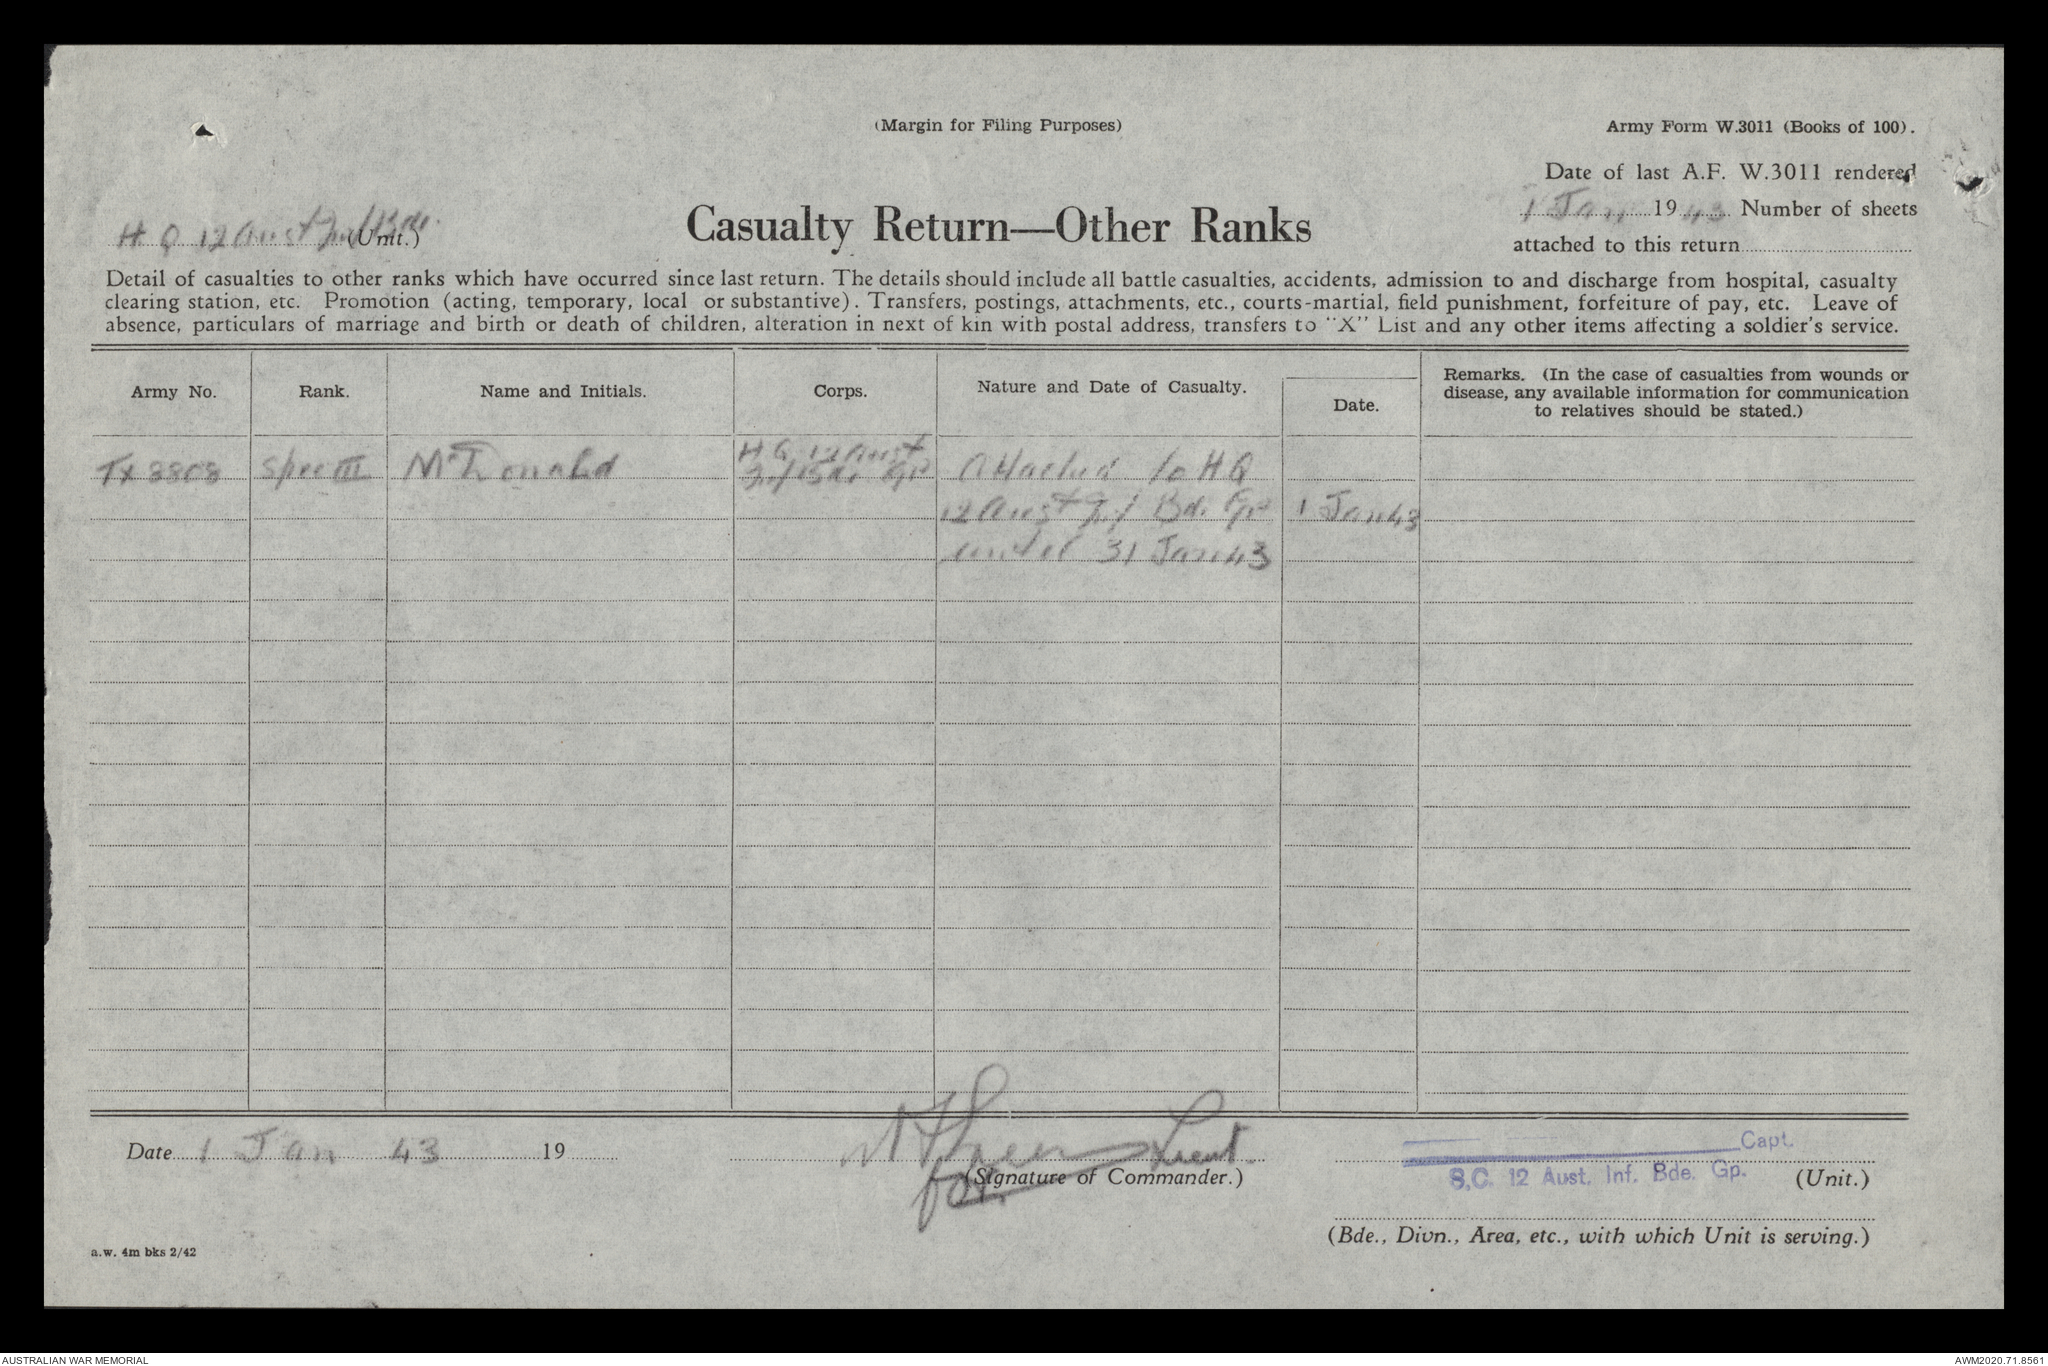 (Margin for Filing Purposes)
Army Form W.3011 (Books of 100).
Date of last A.F. W.3011 rendered
1 Jan 1943 Number of sheets
attached to this return
H Q 12 Aust Inf Bde. (Unit.)
Casualty Return—Other Ranks
Detail of casualties to other ranks which have occurred since last return. The details should include all battle casualties, accidents, admission to and discharge from hospital, casualty
clearing station, etc. Promotion (acting, temporary, local or substantive). Transfers, postings, attachments, etc., courts-martial, field punishment, forfeiture of pay, etc. Leave of
absence, particulars of marriage and birth or death of children, alteration in next of kin with postal address, transfers to "X" List and any other items affecting a soldier's service.
Army No. Rank. Name and Initials. Corps. Nature and Date of Casualty. Date. Remarks. (In the case of casualties from wounds or
disease, any available information for communication
to relatives should be stated.)
TX 8808 Spec III McDonald H Q 12 Aust
Inf Bde Gp Attached to H Q
12 Aust Inf Bd. Gp 1 Jan 43
until 31 Jan 43
Date 1 Jan 43 19
Lieut
for (Signature of Commander.)
Capt.
S.C. 12 Aust. Inf. Bde. Gp. (Unit.)
(Bde., Divn., Area, etc., with which Unit is serving.)
a.w. 4m bks 2/42
AUSTRALIAN WAR MEMORIAL
AWM2020.71.8561